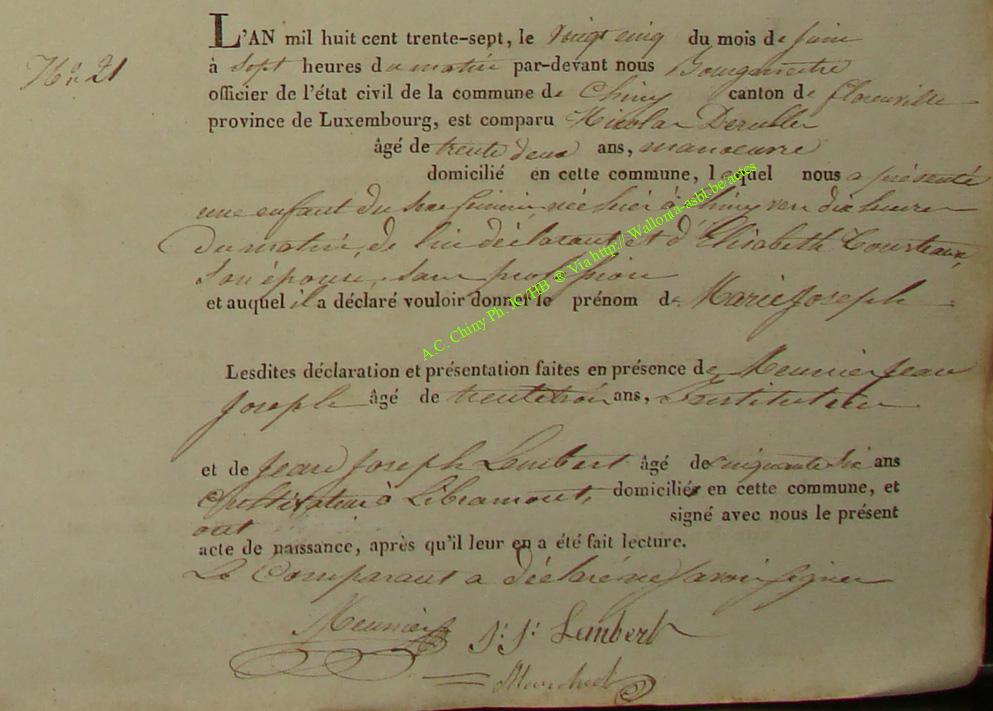 No. 21
L'AN mil huit cent trente-sept, le vingt cinq du mois de juin
à sept heures du matin par-devant nous Bourgmestre
officier de l'état civil de la commune de Chiny canton de florenville
province de Luxembourg, est comparu Nicolas
âgé de trente deux ans, manoeuvre
domicilié en cette commune, lequel nous a présenté
une enfant du sexe féminin, née hier à Chiny vers dix heures
du matin, de lui déclarant et d'Elisabeth Courteaux,
Son épouse, sans profession
et auquel il a déclaré vouloir donner le prénom de Marie Joseph
A.C. Chiny Ph. JC/HB ® Via http:// Wallonia-asbl.be/actes
Lesdites déclaration et présentation faites en présence de Meunier Jean
Joseph âgé de trente trois ans, Instituteur
et de Jean Joseph Lambert âgé de cinquante six ans
Cultivateur à Libramont, domiciliés en cette commune, et
ont signé avec nous le présent
acte de naissance, après qu'il leur en a été fait lecture.
Le Comparant a déclaré ne savoir signer
Meunier J: J: Lambert